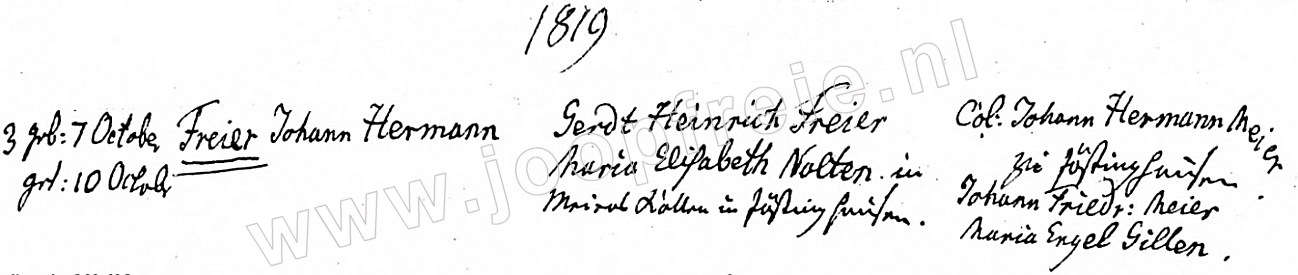 1819
3 geb: 7 October Freier Johann Hermann
get: 10 Octobr
Gerdt Heinrich Freier
Maria Elisabeth Nolten in
Meiers Kotten in Jöstinghausen.
Col: Johann Hermann Meier
zu Jöstinghausen.
Johann Friedr: Meier
Maria Engel Gillen.
www.joopfreje.nl